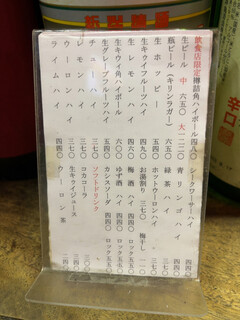 飲食店限定樽詰角ハイボール 四八〇
生ビール 中 六五〇 大一二〇〇
瓶ビール(キリンラガー) 六五〇
生ホッピー 五四〇
生キウイフルーツハイ 四九〇
生キウイ角ハイボール 六〇〇
生グレープフルーツハイ 五四〇
チューハイ 三七〇
レモンハイ 三七〇
ウーロンハイ 三七〇
ライムハイ 四四〇
シークワーサーハイ 四四〇
青リンゴハイ 四四〇
緑茶ハイ 三七〇
ホットウーロンハイ 三七〇
お湯割り 三七〇 梅干し 一〇〇
梅酒ハイ 四六〇 ロック五五〇
ゆず酒ハイ 四六〇 ロック五五〇
カシスソーダ 四六〇 ロック五五〇
ソフトドリンク
コカコーラ
生キウイジュース
ウーロン茶
辛口